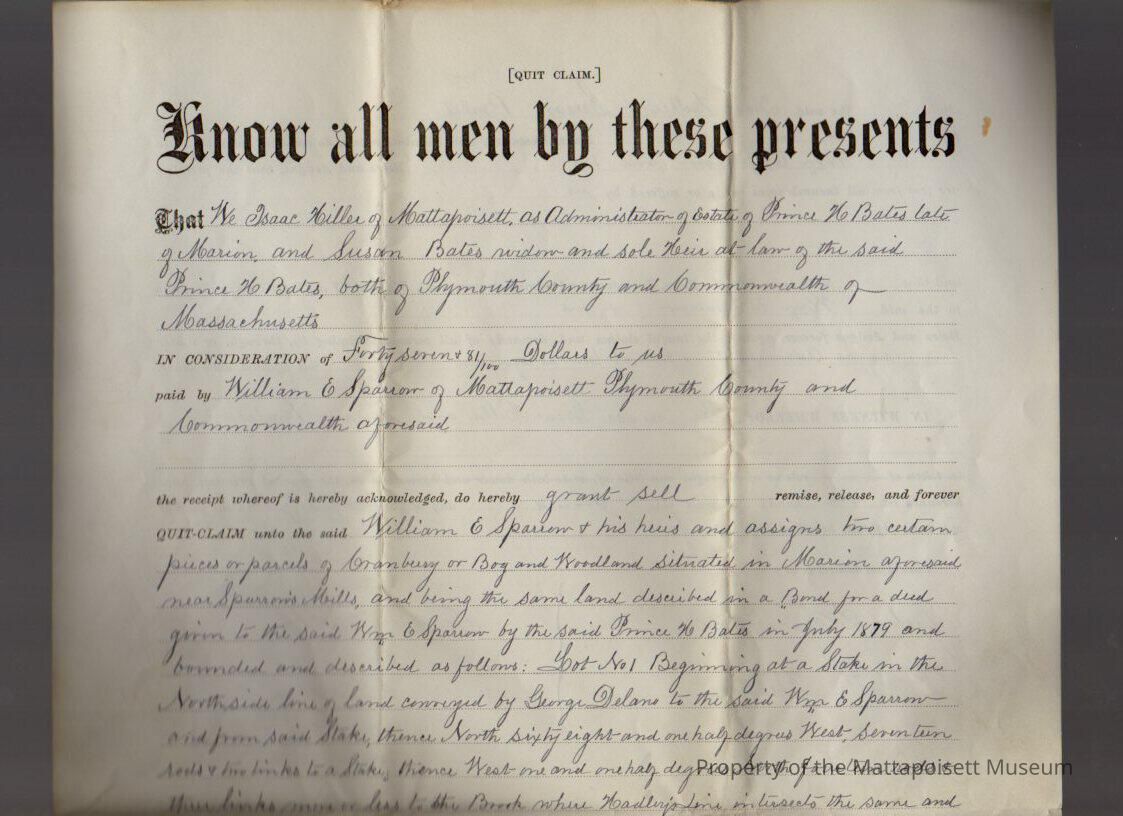 [QUIT CLAIM.]
Know all men by these presents
That We Isaac Hiller of Mattapoisett, as Administrator of Estate of Prince H Bates late
of Marion, and Susan Bates widow and sole Heir at law of the said
Prince H Bates, both of Plymouth County and Commonwealth of
Massachusetts
IN CONSIDERATION of Forty seven & 81/100 Dollars to us
paid by William E Sparrow of Mattapoisett Plymouth County and
Commonwealth aforesaid
the receipt whereof is hereby acknowledged, do hereby grant sell remise, release, and forever
QUIT-CLAIM unto the said William E Sparrow & his heirs and assigns two certain
pieces or parcels of Cranbury or Bog and Woodland situated in Marion aforesaid
near Sparrow's Mills, and being the same land described in a Bond for a deed
given to the said Wm E Sparrow by the said Prince H Bates in July 1879 and
bounded and described as follows: Lot No 1 Beginning at a Stake in the
North side line of land conveyed by George Delano to the said Wm E Sparrow
and from said Stake, thence North sixty eight and one half degrees West, seventeen
rods & two links to a Stake, thence West one and one half degrees
three links more or less to the Brook where Hadley's Line intersects the same and
Property of the Mattapoisett Museum